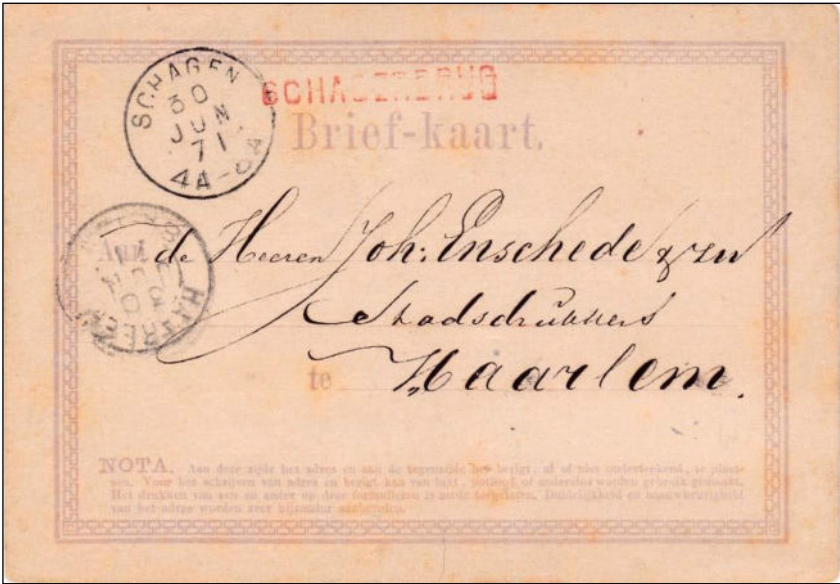 SCHAGEN
30
JUN
71
4A-8A
SCHAGERBRUG
Brief-kaart.
Aan de Heeren Joh: Enschede & Zn
Stadsdrukkers
te Haarlem.
HAARLEM
NOTA. Aan deze zijde het adres en aan de tegenzijde het berigt, al of niet onderteekend, te plaat-
sen. Voor het schrijven van adres en berigt kan van inkt, potlood of anderszins worden gebruik gemaakt.
Het drukken van een en ander op deze formulieren is mede toegelaten. Duidelijkheid en naauwkeurigheid
van het adres worden zeer bijzonder aanbevolen.